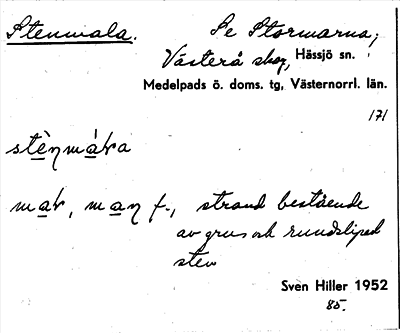 Stenmala. Se Stormarna;
Västerå skog, Hässjö sn.
Medelpads ö. doms. tg, Västernorrl. län.
171
stènmára
mar, man f., strand bestående
av grus och rundslipad
sten
Sven Hiller 1952
85.